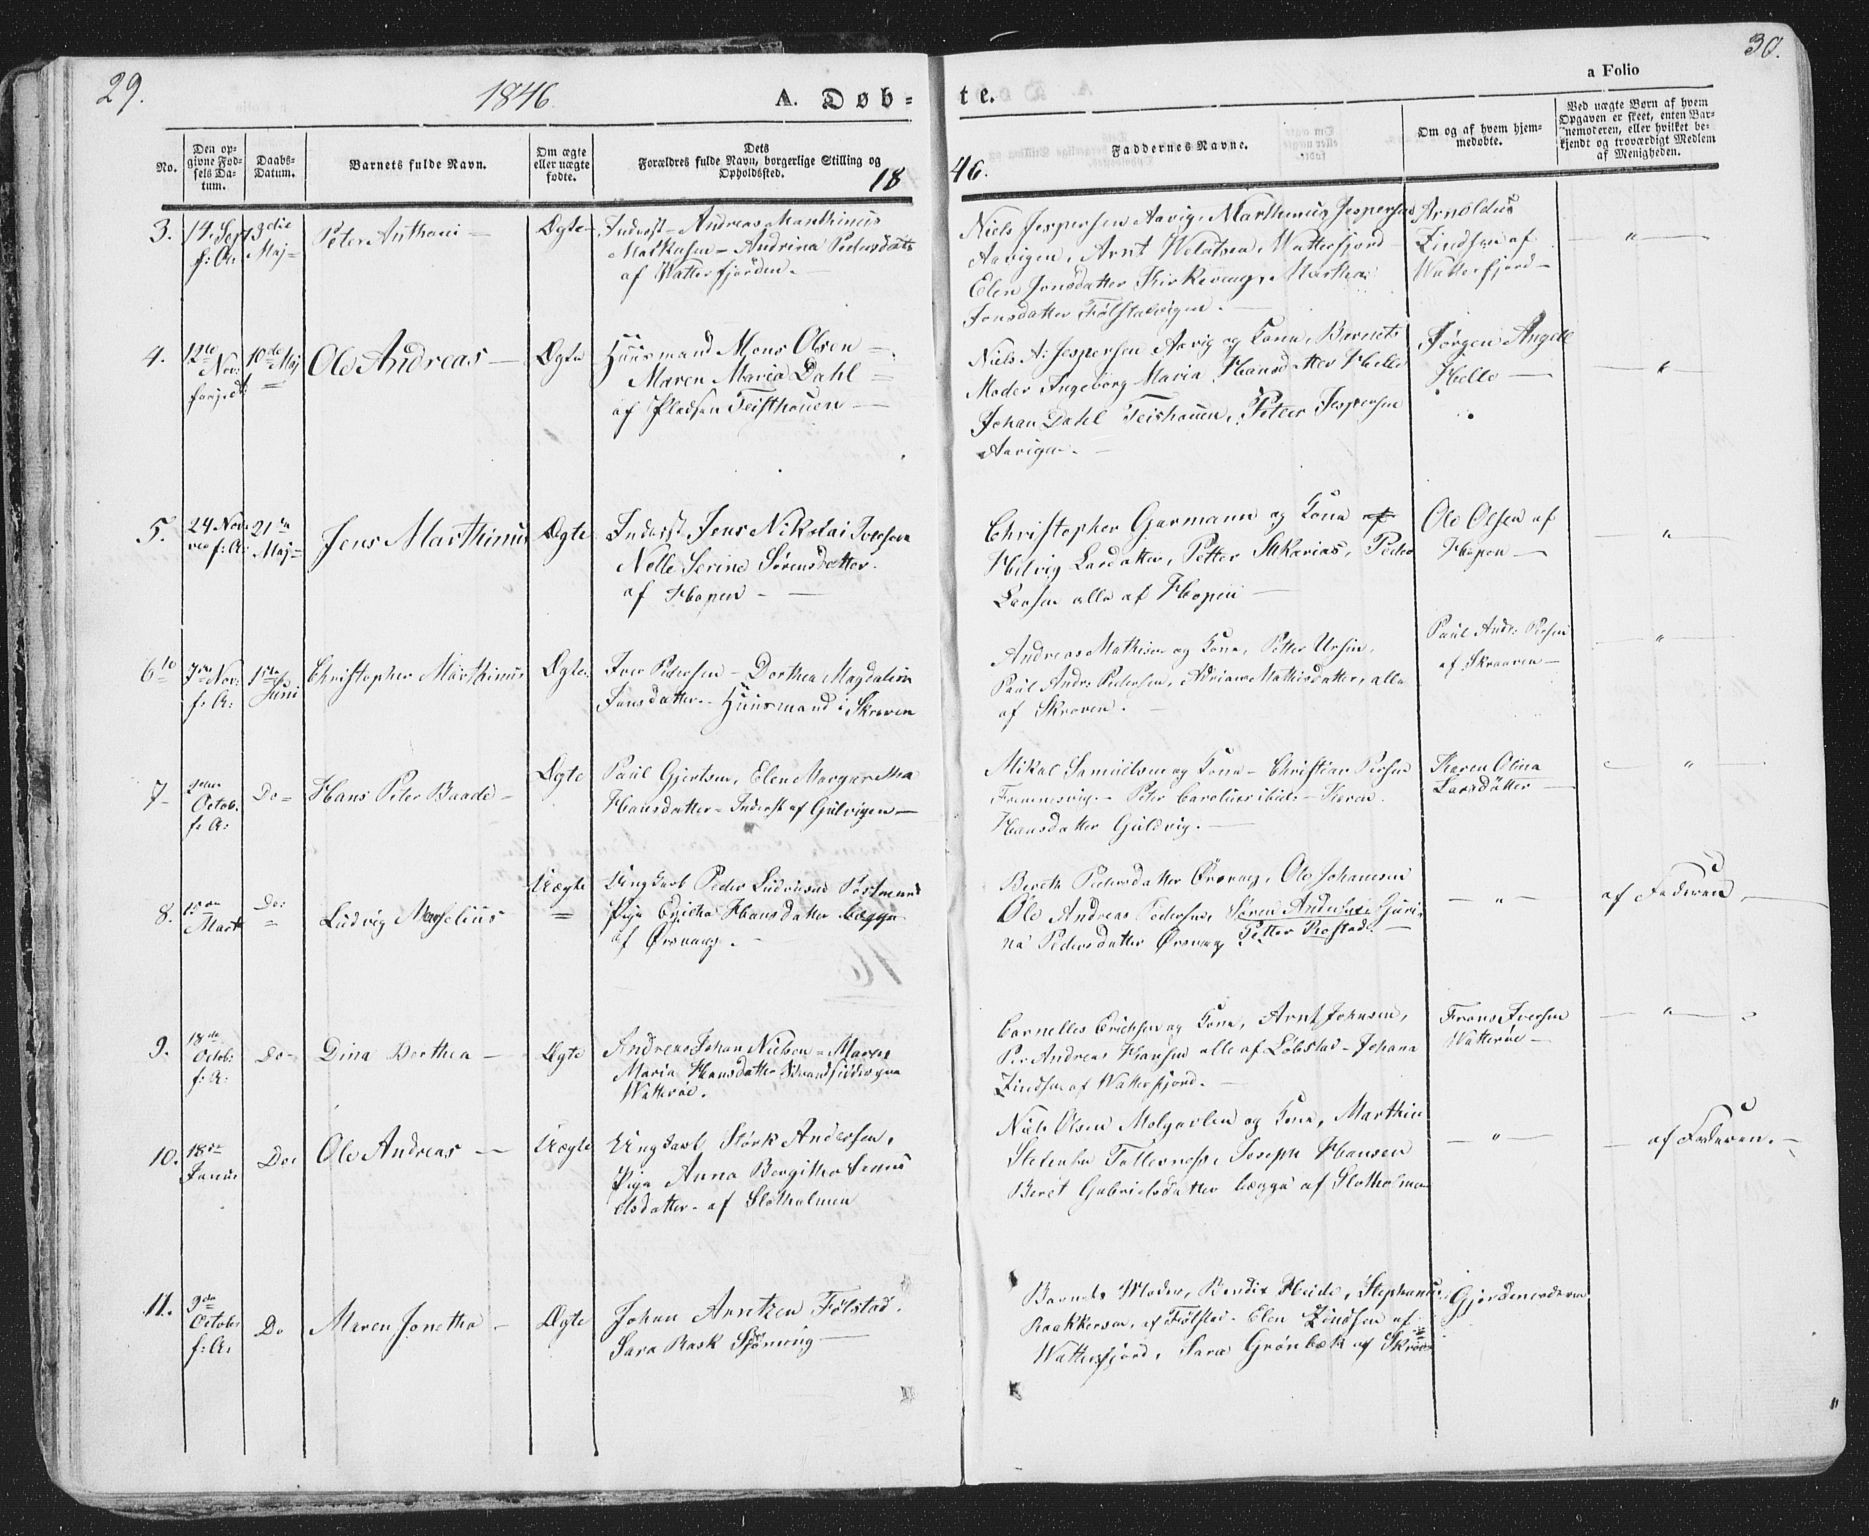 29.
1846
A. Døb-
te.
a Folio
30.
No.
Den op-
givne Fød-
sels Da-
tum.
Daabs-
Datum.
Barnets fulde Navn.
Om ægte
eller uægte
fødte.
Dets
Forældres fulde Navn, borgerlige Stilling og
Opholdsted.
18
46.
Faddernes Navne.
Om og af hvem hjem-
medøbte.
Ved uægte Børn af hvem
Opgaven er skeet, enten Bar-
nemoderen, eller hvilket be-
kjendt og troværdigt Medlem
af Menigheden.
3.
14. Sept
f: A:
3die
Maj
Peter Anthoni
Ægte
Inderst Andreas Marthinus
Markusen Andrina Pedersdatt
af Watterfjorden.
Niels Jespersen Aavig, Marthinus Jespersen
Aavigen, Arnt Watterfjord
Elen Jonsdatter Kirkevaag, Martha
Jonsdatter Følstadvigen.
Arnoldus
Zindsen af
Watterfjord
4.
12te
Nov.
10de Maj
Ole Andreas
Ægte
Huusmand Mons Olsen
Maren Maria Dahl
af Pladsen Teisthouen
Niels A: Jespersen Aavig og Kona, Barnets
Moder Ingeborg Maria Hansdatter Helle
Johan Dahl Teishouen, Peter Jespersen
Aavigen.
Jørgen Angell
Helle
5.
24 Nov.
f: A:
21de
Maj
Jens Marthinus
Ægte
Inderst Jens Nikolai Iversen
Nelle Serine Sørensdatter
af Hopen
Christopher Garmann og Kona af
Hilvig Larsdatter, Petter Sakarias, Peder
Larsen alle af Hopen
Ole Olsen af
Hopen
6te
7de Nov:
f: A:
1ste
Juni
Christopher Marthinus
Ægte.
Iver Pedersen Dorthea Magdalena
Jonsdatter Huusmand i Skroven
Andreas Mathisen og Kona, Petter Ursin,
Paul Andr: Pedersen, Adriane Mathisdatter, alle
af Skroven.
Paul Andr: Persen
af Skraaven
7
Octob.
f: A:
Do
Hans Peter Baade
Ægte
Paul Gjertsen, Elen Margaretha
Hansdatter Inderst af Gulvigen
Mikal Samuelsen og Kona Christian Persen
Peter Carolius ibid: Karen
Hansdatter Guldvig.
Karen Olina
Larsdatter
8.
15de
Mart
Do:
Ludvig Marselius
Uægte
Ungkarl Peder Ludvigsen
Pige Ericha Hansdatter begge
af Ørsvaag.
Bereth Pedersdatter Ørsvaag, Ole Johansen
Ole Andreas Pedersen, Søren Andersen, Guri-
na Pedersdatter Ørsvaag Petter Rostad
af Faderen
9.
18de
Octob:
f: A:
Do
Dina Dorthea
Ægte
Andreas Johan Nielsen Maren
Maria Hansdatter Strandsidder
Watterøe.
Cornelles Erichsen og Kona, Arnt Johnsen,
Per Andreas Hansen alle af Løbstad Johana
Zindsen af Watterfjord.
Frans Iversen
Watterøe
10.
18de
Januar
Do
Ole Andreas
Uægte
Ungkarl Størk Andersen,
Pige Anna Bergitha
datter af Slotholmen
Niels Olsen Molgavlen og Kona, Marthin
Joseph Hansen
Beret Gabrielsdatter begge af Slotholmen
af Faderen.
11.
9de
Octob:
f: A:
Do
Maren Jonetha
Ægte
Johan Arntzen Følstad.
Sara Rask
Barnets Moder, Bendix Heide, Stephanus
af Følstad. Elen Zindsen af
Watterfjord, Sara Grønbæk af Skrove
Gjordemoderen